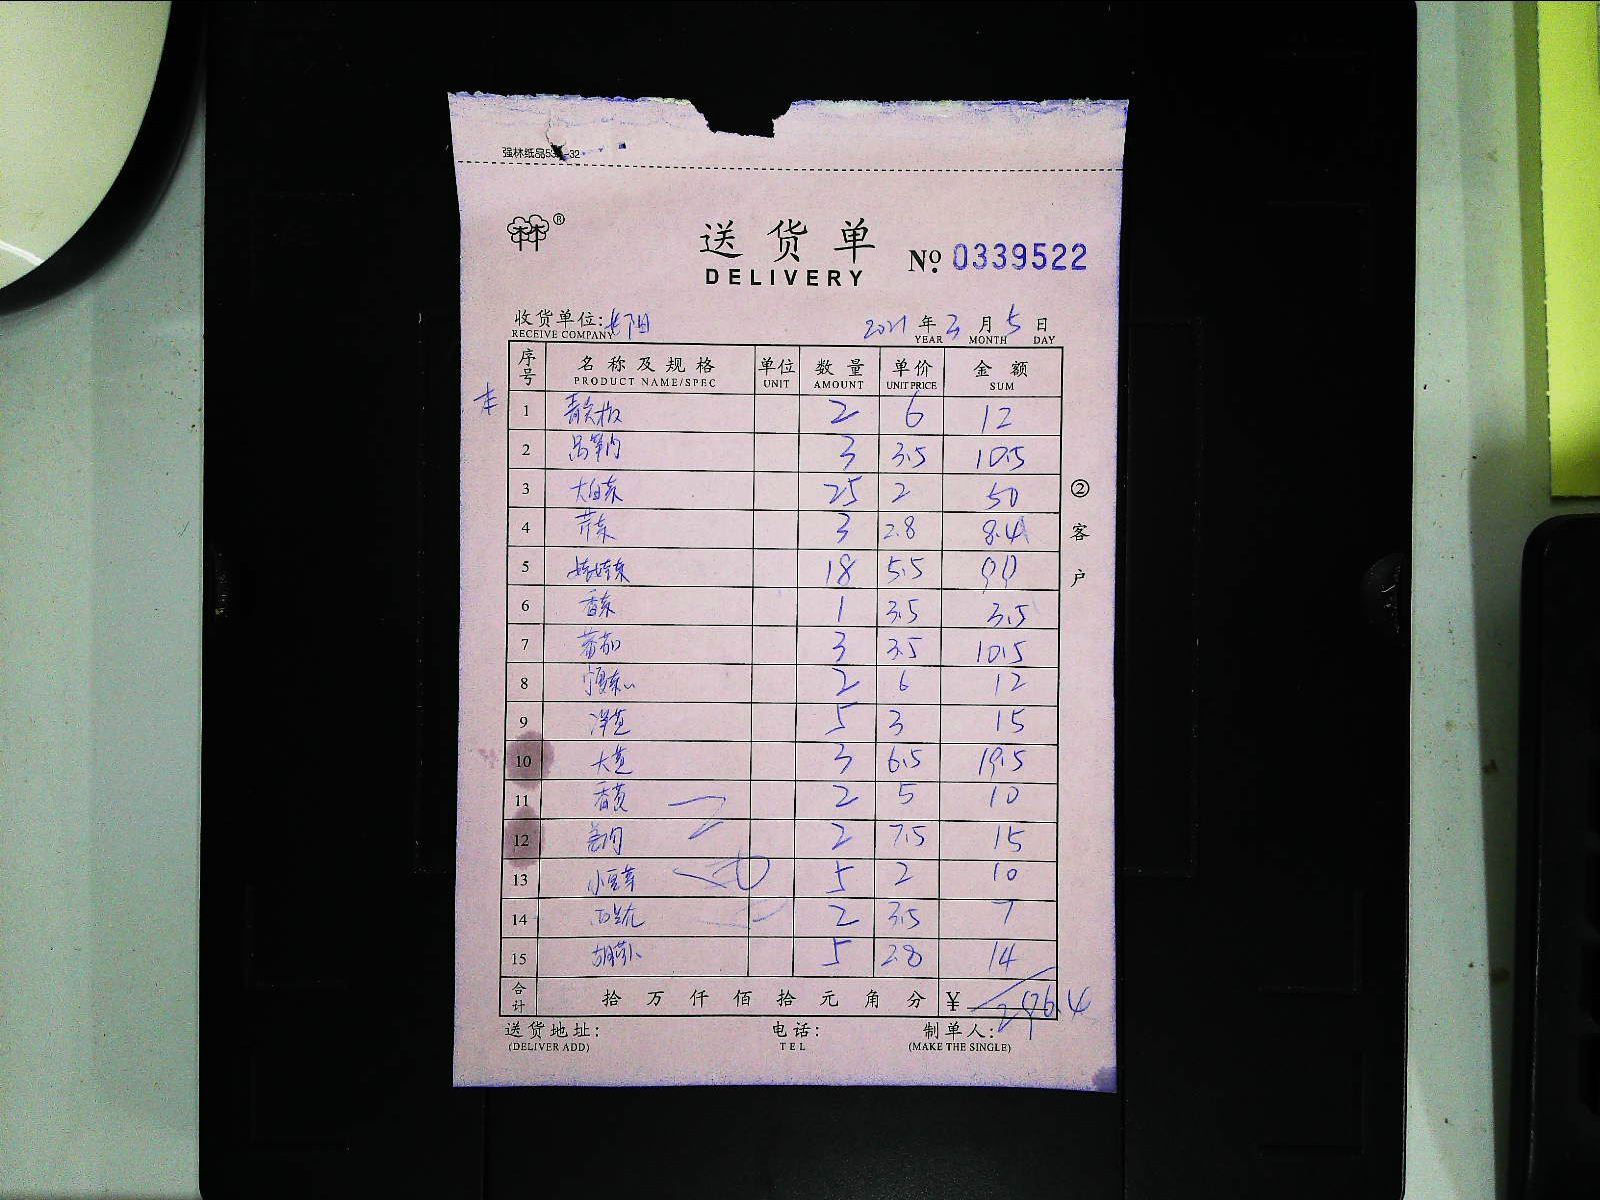 强林纸品53 -32
林® 送货单 No. 0339522
DELIVERY
收货单位: 2021 年 3 月 5 日
RECEIVE COMPANY YEAR MONTH DAY
序号 名称及规格 单位 数量 单价 金额
PRODUCT NAME/SPEC UNIT AMOUNT UNIT PRICE SUM
1 2 6 12
2 3 3.5 10.5
3 大白菜 25 2 50
4 芹菜 3 2.8 8.4
5 娃娃菜 18 5.5 99
6 香菜 1 3.5 3.5
7 蕃茄 3 3.5 10.5
8 2 6 12
9 洋芋 5 3 15
10 大 3 6.5 19.5
11 香 2 5 10
12 2 7.5 15
13 小豆芽 5 2 10
14 2 3.5 7
15 胡萝卜 5 2.8 14
合计 拾 万 仟 佰 拾 元 角 分 ¥ 296.4
送货地址: 电话: 制单人:
(DELIVER ADD) TEL (MAKE THE SINGLE)
②客户